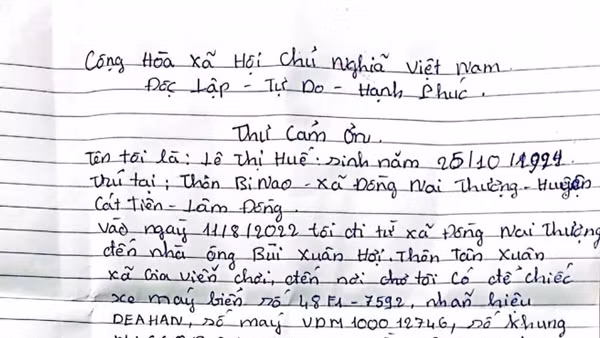 Cộng Hòa Xã Hội Chủ Nghĩa Việt Nam.
Độc Lập - Tự Do - Hạnh Phúc.
Thư Cảm Ơn.
Tên tôi là: Lê Thị Huế: sinh năm 25/10/1994
Trú tại: Thôn Bi Nao - xã Đồng Nai Thượng - Huyện
Cát Tiên - Lâm Đồng.
Vào ngày 11/8/2022 tôi đi từ xã Đồng Nai Thượng
đến nhà ông Bùi Xuân Hợi. Thôn Tân Xuân
xã Gia Viễn chơi, đến nơi chơ tôi có để chiếc
xe máy biển số 48F1-7592, nhãn hiệu
DEAHAN, số máy VDM1000 12746, số khung